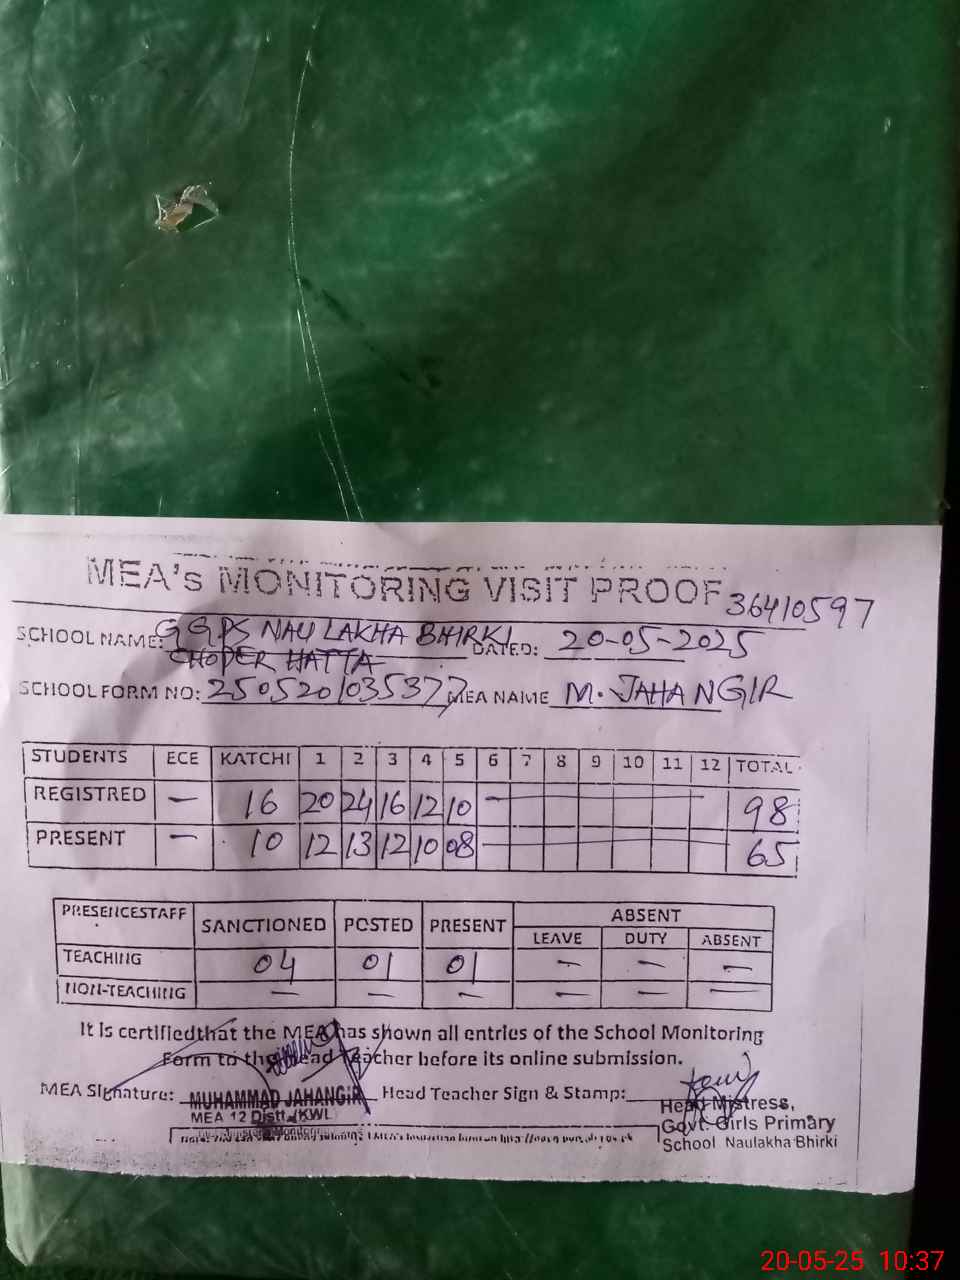 MEA's MONITORING VISIT PROOF 36410597
SCHOOL NAME: GGPS NAU LAKHA BHIRKI DATED: 20-05-2025
CHOPER HATTA
SCHOOL FORM NO: 250520103537 MEA NAME M. JAHANGIR
STUDENTS ECE KATCHI 1 2 3 4 5 6 7 8 9 10 11 12 TOTAL
REGISTRED — 16 20 24 16 12 10 — 98
PRESENT — 10 12 13 12 10 08 — 65
PRESENCESTAFF SANCTIONED POSTED PRESENT ABSENT
LEAVE DUTY ABSENT
TEACHING 04 01 01 — — —
NON-TEACHING — — — — — —
It is certifiedthat the MEA has shown all entries of the School Monitoring
Form to the Head Teacher before its online submission.
MEA Signature: Head Teacher Sign & Stamp:
MUHAMMAD JAHANGIR
MEA 12 Distt. (KWL)
Head Mistress,
Govt. Girls Primary
School Naulakha Bhirki
20-05-25 10:37